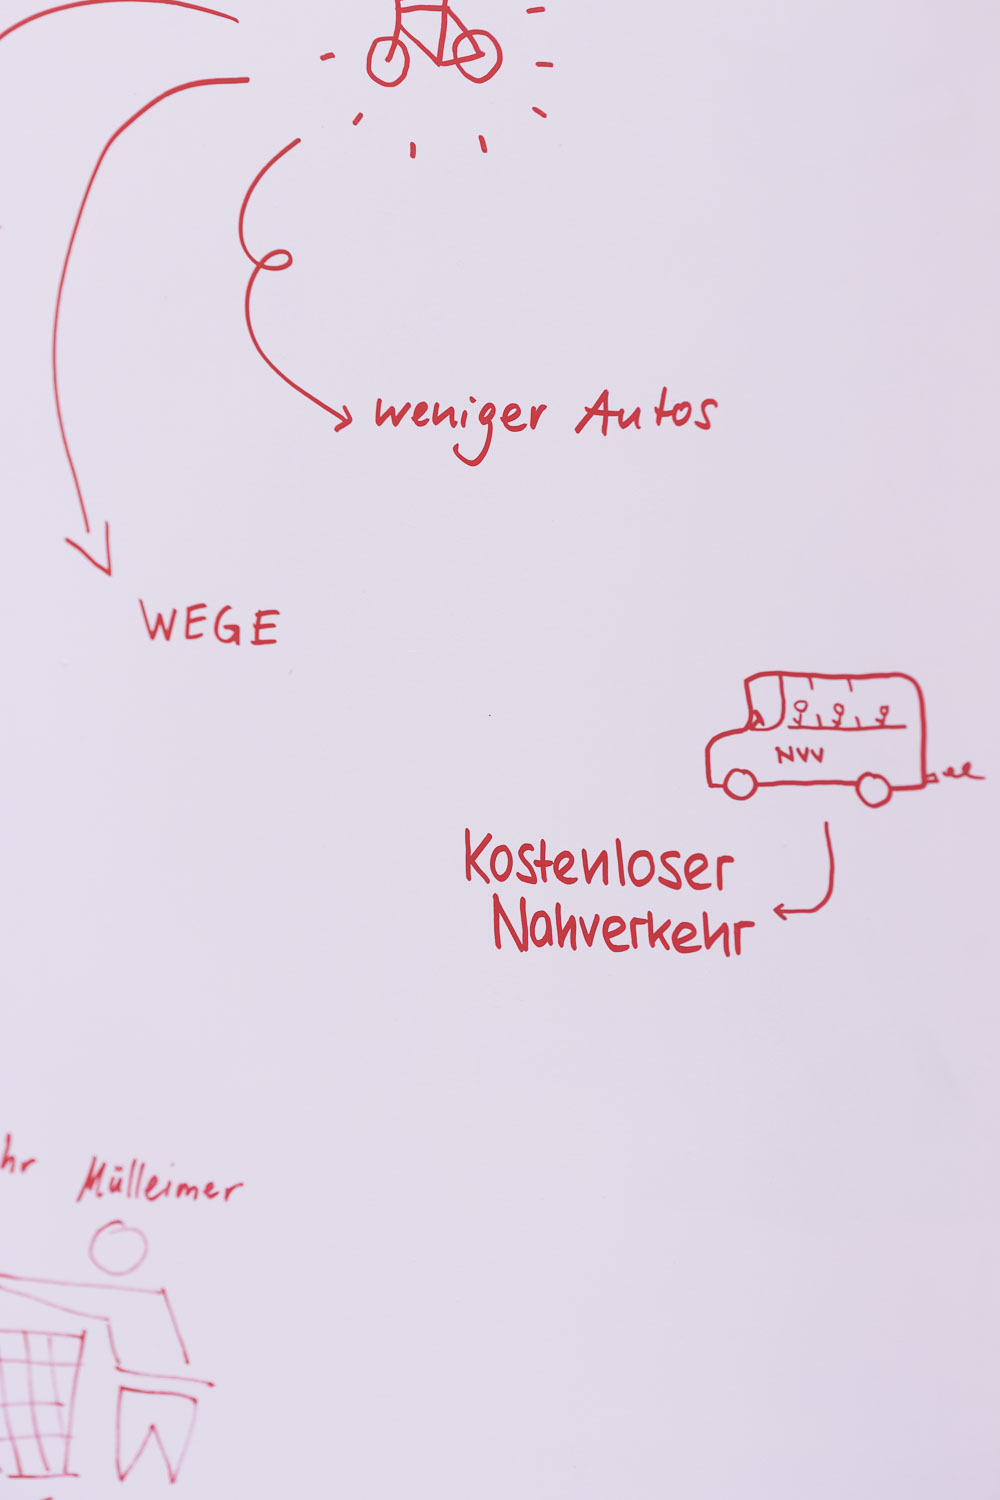 weniger Autos
WEGE
NVV
Kostenloser
Nahverkehr
hr Mülleimer